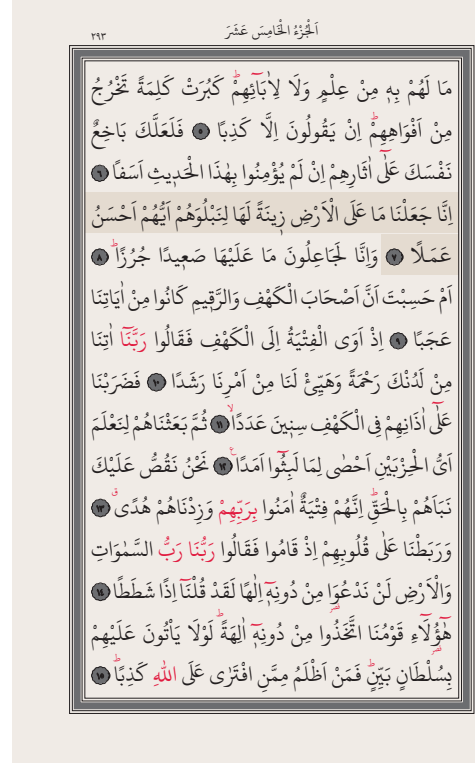 اَلْجُزْءُ الْخَامِسَ عَشَرَ
٢٩٣
مَا لَهُمْ بِهٖ مِنْ عِلْمٍ وَلَا لِاٰبَٓائِهِمْۜ كَبُرَتْ كَلِمَةً تَخْرُجُ
مِنْ اَفْوَاهِهِمْۜ اِنْ يَقُولُونَ اِلَّا كَذِبًا ﴿٥﴾ فَلَعَلَّكَ بَاخِعٌ
نَفْسَكَ عَلٰٓى اٰثَارِهِمْ اِنْ لَمْ يُؤْمِنُوا بِهٰذَا الْحَدٖيثِ اَسَفًا ﴿٦﴾
اِنَّا جَعَلْنَا مَا عَلَى الْاَرْضِ زٖينَةً لَهَا لِنَبْلُوَهُمْ اَيُّهُمْ اَحْسَنُ
عَمَلًا ﴿٧﴾ وَاِنَّا لَجَاعِلُونَ مَا عَلَيْهَا صَعٖيدًا جُرُزًاۜ ﴿٨﴾
اَمْ حَسِبْتَ اَنَّ اَصْحَابَ الْكَهْفِ وَالرَّقٖيمِ كَانُوا مِنْ اٰيَاتِنَا
عَجَبًا ﴿٩﴾ اِذْ اَوَى الْفِتْيَةُ اِلَى الْكَهْفِ فَقَالُوا رَبَّنَٓا اٰتِنَا
مِنْ لَدُنْكَ رَحْمَةً وَهَيِّئْ لَنَا مِنْ اَمْرِنَا رَشَدًا ﴿١٠﴾ فَضَرَبْنَا
عَلٰٓى اٰذَانِهِمْ فِى الْكَهْفِ سِنٖينَ عَدَدًاۙ ﴿١١﴾ ثُمَّ بَعَثْنَاهُمْ لِنَعْلَمَ
اَىُّ الْحِزْبَيْنِ اَحْصٰى لِمَا لَبِثُٓوا اَمَدًاࣖ ﴿١٢﴾ نَحْنُ نَقُصُّ عَلَيْكَ
نَبَاَهُمْ بِالْحَقِّۜ اِنَّهُمْ فِتْيَةٌ اٰمَنُوا بِرَبِّهِمْ وَزِدْنَاهُمْ هُدًىۗ ﴿١٣﴾
وَرَبَطْنَا عَلٰى قُلُوبِهِمْ اِذْ قَامُوا فَقَالُوا رَبُّنَا رَبُّ السَّمٰوَاتِ
وَالْاَرْضِ لَنْ نَدْعُوَ۬ا مِنْ دُونِهٖٓ اِلٰهًا لَقَدْ قُلْنَٓا اِذًا شَطَطًا ﴿١٤﴾
هٰٓؤُ۬لَٓاءِ قَوْمُنَا اتَّخَذُوا مِنْ دُونِهٖٓ اٰلِهَةًۜ لَوْلَا يَاْتُونَ عَلَيْهِمْ
بِسُلْطَانٍ بَيِّنٍۜ فَمَنْ اَظْلَمُ مِمَّنِ افْتَرٰى عَلَى اللّٰهِ كَذِبًاۜ ﴿١٥﴾